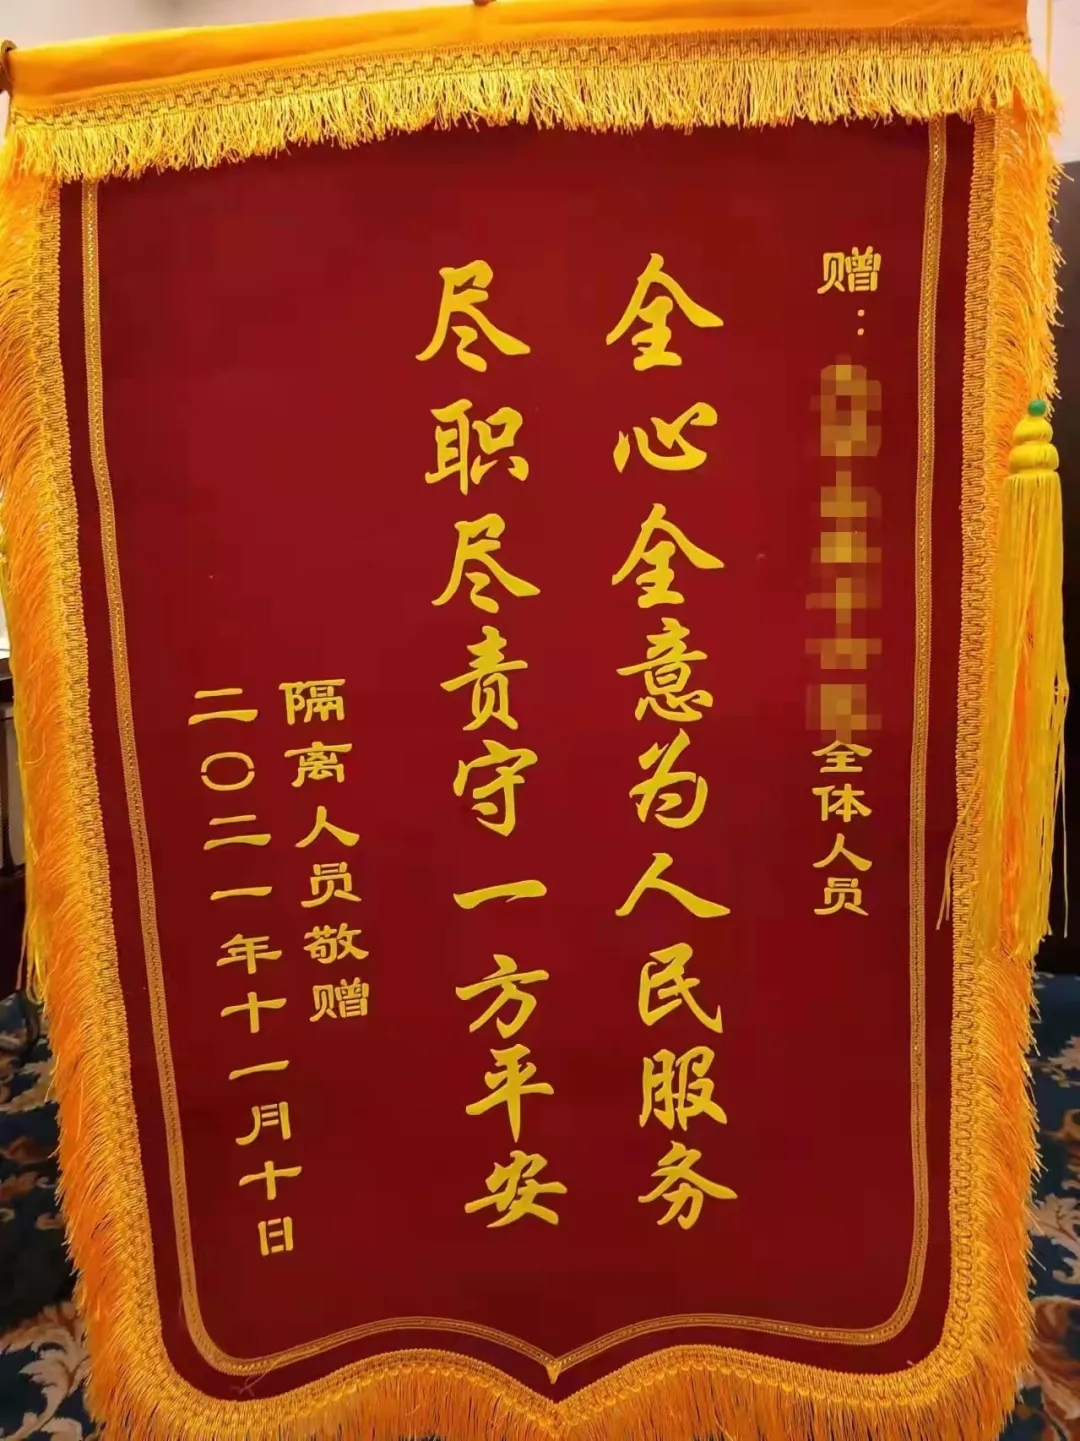 赠：
全体人员
全心全意为人民服务
尽职尽责守一方平安
隔离人员敬赠
二〇二一年十一月十日